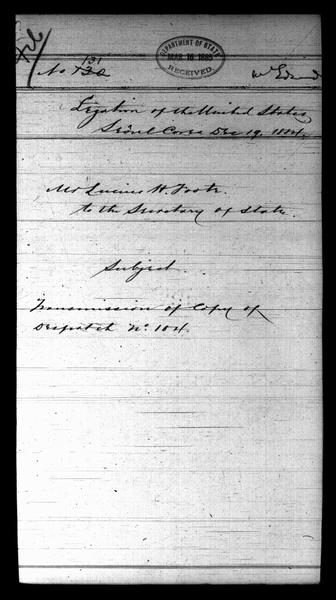 File
131
No 130
DEPARTMENT OF STATE
MAR 16 1885
RECEIVED.
Legation of the United States
Seoul Corea Dec 19. 1884.
Mr Lucius H. Foote.
to the Secretary of State.
Subject
Transmission of Copy of
Despatch No. 104.